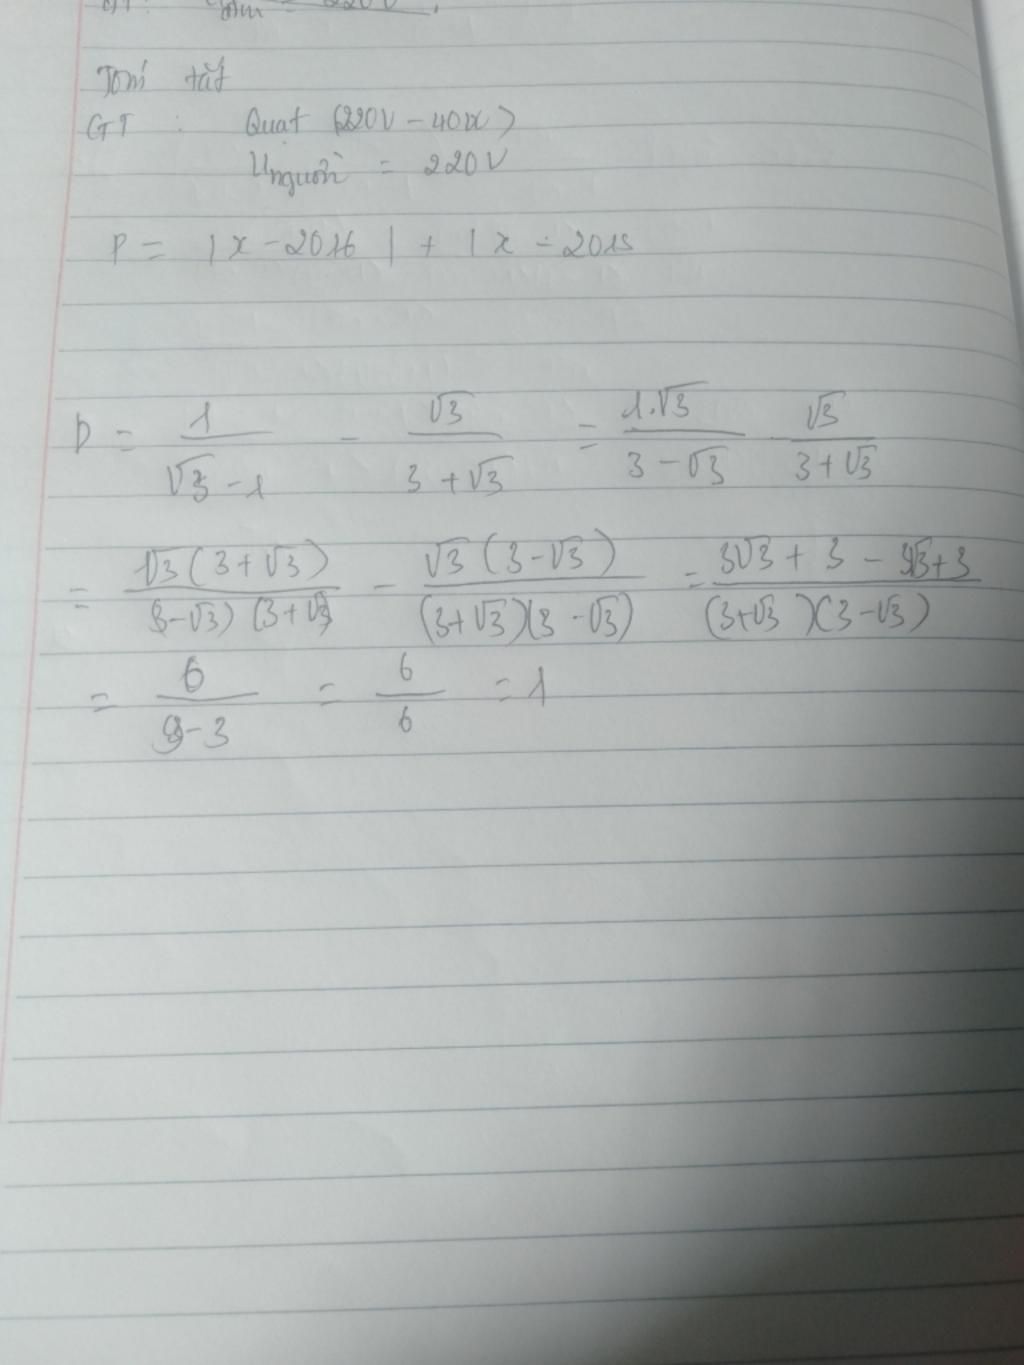 220V
Tóm tắt
GT : Quạt (220V - 40W)
Unguồn = 220V
P = |x - 2016| + |x - 2015
D = 1/(√3 - 1) - √3/(3 + √3) = 1.√3/(3 - √3) √3/(3 + √3)
= √3(3 + √3)/(3 - √3)(3 + √3) - √3(3 - √3)/(3 + √3)(3 - √3) = 3√3 + 3 - 3√3 + 3/(3 + √3)(3 - √3)
= 6/(9 - 3) = 6/6 = 1